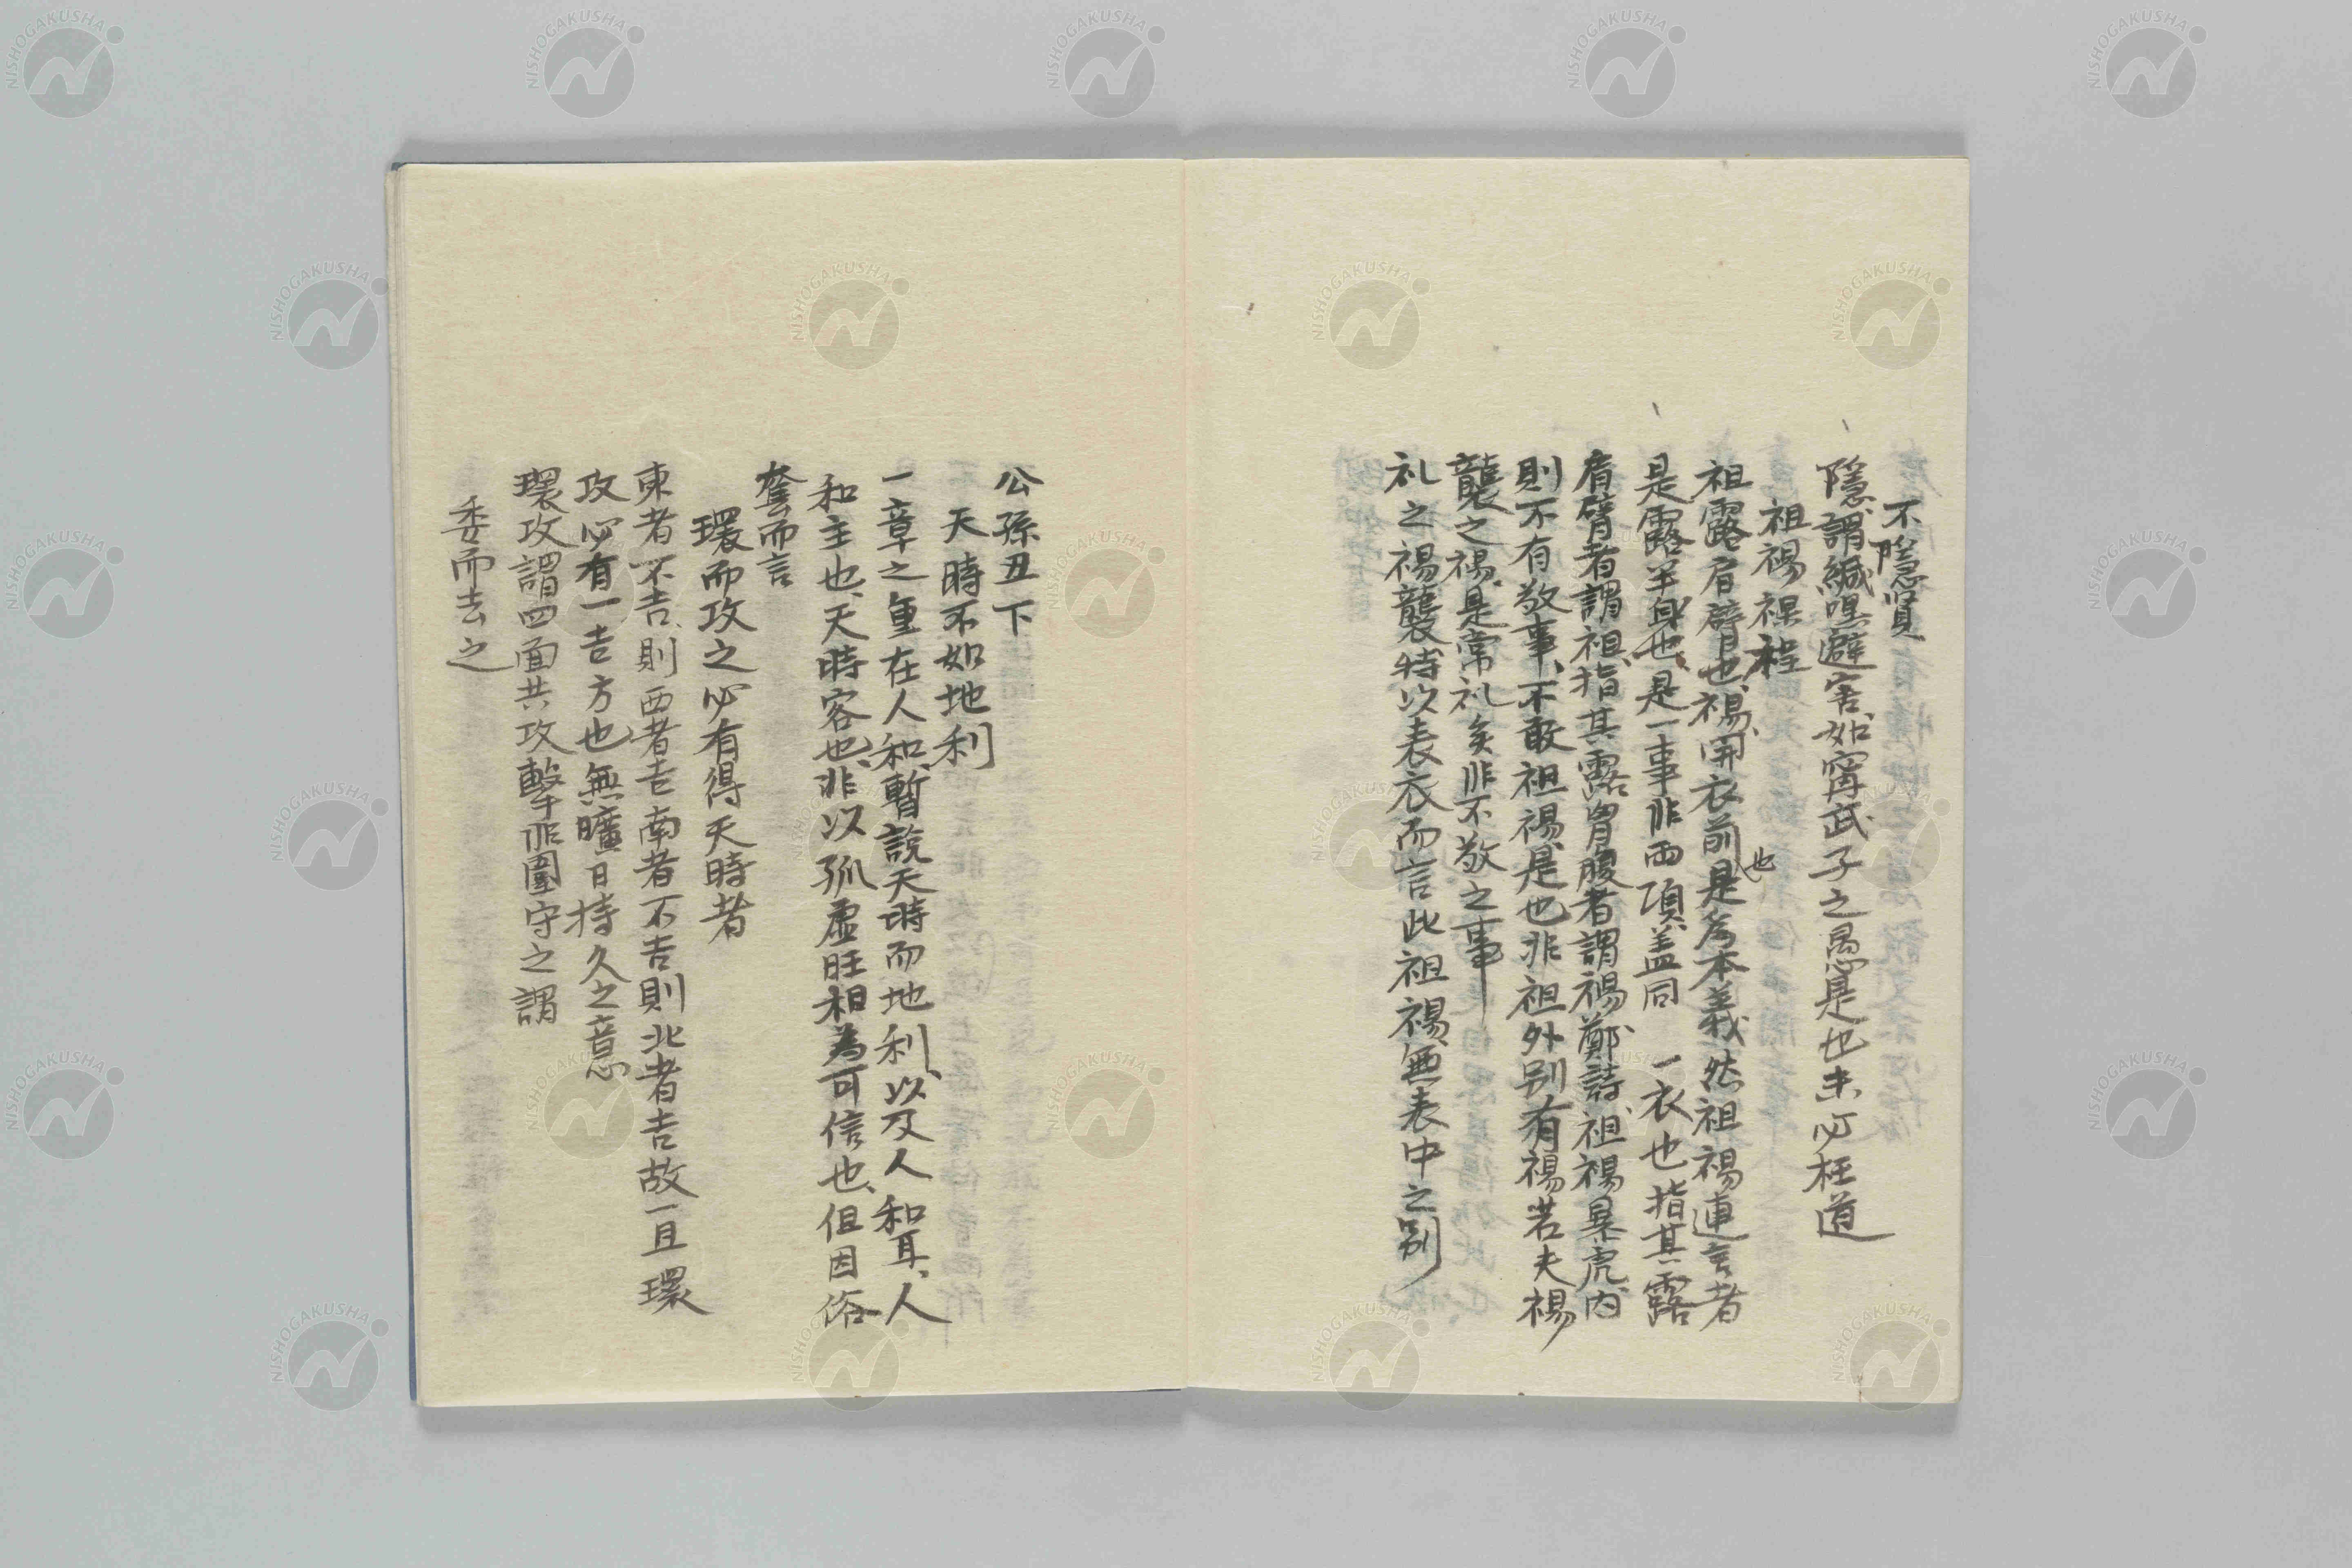 不隱賢
隱謂緘嘿避害如甯武子之愚是也未必枉道
袒裼裸裎
袒露肩臂也、裼開衣前也是為本義然袒裼連言者
是露半身也、是一事非两項盖同一衣也指其露
肩臂者謂袒、指其露胷腹者謂裼鄭詩袒裼暴虎、内
則不有敬事、不敢袒裼是也非袒外別有裼若夫裼
襲之裼、是常礼矣非不敬之事
礼之裼襲特以表衣而言此袒裼無表中之別
公孫丑下
天時不如地利
一章之重在人和、暫說天時而地利、以及人和耳、人
和主也、天時客也、非以孤虛旺相為可信也、但因俗
而言
環而攻之必有得天時者
東者不吉、則西者吉南者不吉則北者吉故一且環
攻必有一吉方也無曠日持久之意
環攻謂四面共攻擊非圍守之謂
委而去之
NISHOGAKUSHA